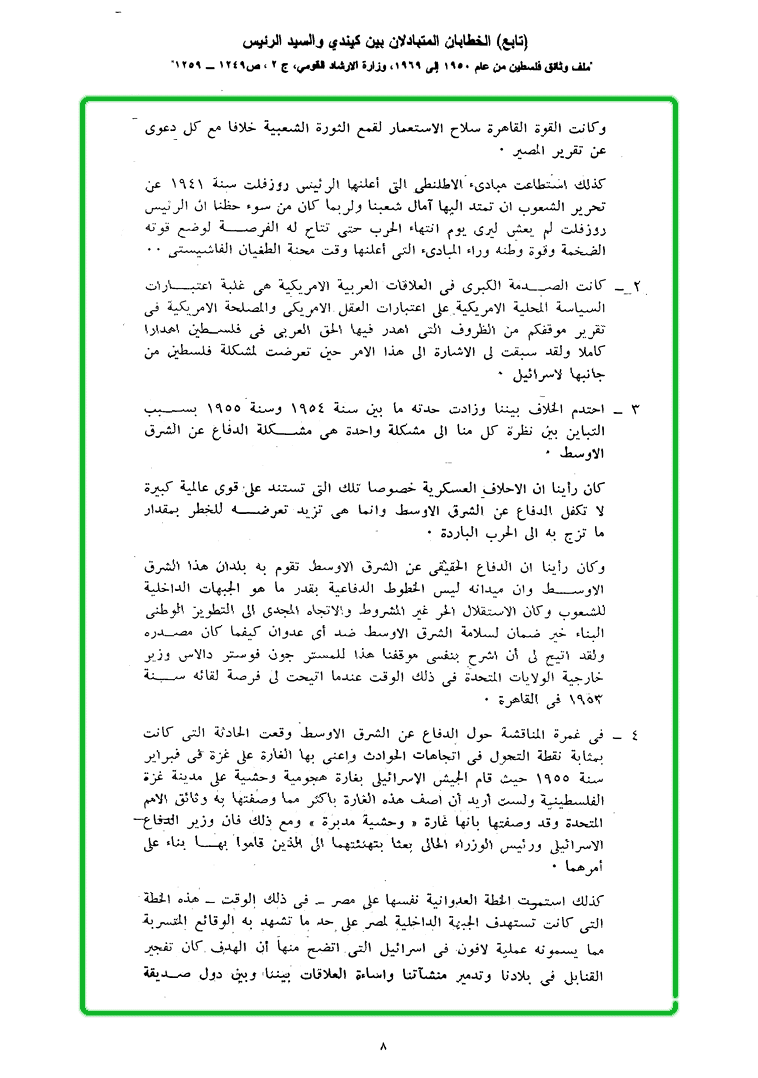 (تابع) الخطابان المتبادلان بين كيندي والسيد الرئيس
"ملف وثائق فلسطين من عام ١٩٥٠ إلى ١٩٦٩، وزارة الارشاد القومي، ج ٢ ، ص١٢٤٩ – ١٢٥٩"
وكانت القوة القاهرة سلاح الاستعمار لقمع الثورة الشعبية خلافا مع كل دعوى
عن تقرير المصير ٠
كذلك استطاعت مبادىء الاطلنطى التى أعلنها الرئيس روزفلت سنة ١٩٤١ عن
تحرير الشعوب ان تمتد اليها آمال شعبنا ولربما كان من سوء حظنا ان الرئيس
روزفلت لم يعش ليرى يوم انتهاء الحرب حتى تتاح له الفرصة لوضع قوته
الضخمة وقوة وطنه وراء المبادىء التى أعلنها وقت محنة الطغيان الفاشيستى ٠٠
٢ – كانت الصدمة الكبرى فى العلاقات العربية الامريكية هى غلبة اعتبارات
السياسة المحلية الامريكية على اعتبارات العقل الامريكى والمصلحة الامريكية فى
تقرير موقفكم من الظروف التى اهدر فيها الحق العربى فى فلسطين اهدارا
كاملا ولقد سبقت لى الاشارة الى هذا الامر حين تعرضت لمشكلة فلسطين من
جانبها لاسرائيل ٠
٣ – احتدم الخلاف بيننا وزادت حدته ما بين سنة ١٩٥٤ وسنة ١٩٥٥ بسبب
التباين بين نظرة كل منا الى مشكلة واحدة هى مشكلة الدفاع عن الشرق
الاوسط ٠
كان رأينا ان الاحلاف العسكرية خصوصا تلك التى تستند على قوى عالمية كبيرة
لا تكفل الدفاع عن الشرق الاوسط وانما هى تزيد تعرضه للخطر بمقدار
ما تزج به الى الحرب الباردة ٠
وكان رأينا ان الدفاع الحقيقى عن الشرق الاوسط تقوم به بلدان هذا الشرق
الاوسط وان ميدانه ليس الخطوط الدفاعية بقدر ما هو الجبهات الداخلية
للشعوب وكان الاستقلال الحر غير المشروط والاتجاه المجدى الى التطوير الوطنى
البناء خير ضمان لسلامة الشرق الاوسط ضد أى عدوان كيفما كان مصدره
ولقد اتيح لى أن اشرح بنفسى موقفنا هذا للمستر جون فوستر دالاس وزير
خارجية الولايات المتحدة فى ذلك الوقت عندما اتيحت لى فرصة لقائه سنة
١٩٥٣ فى القاهرة ٠
٤ – فى غمرة المناقشة حول الدفاع عن الشرق الاوسط وقعت الحادثة التى كانت
بمثابة نقطة التحول فى اتجاهات الحوادث واعنى بها الغارة على غزة فى فبراير
سنة ١٩٥٥ حيث قام الجيش الاسرائيلى بغارة هجومية وحشية على مدينة غزة
الفلسطينية ولست أريد أن اصف هذه الغارة باكثر مما وصفتها به وثائق الامم
المتحدة وقد وصفتها بانها غارة « وحشية مدبرة » ومع ذلك فان وزير الدفاع
الاسرائيلى ورئيس الوزراء الحالى بعثا بتهنئتهما الى الذين قاموا بها بناء على
أمرهما ٠
كذلك استمرت الخطة العدوانية نفسها على مصر – فى ذلك الوقت – هذه الخطة
التى كانت تستهدف الجبهة الداخلية لمصر على حد ما تشهد به الوقائع المتسربة
مما يسمونه عملية لافون فى اسرائيل التى اتضح منها أن الهدف كان تفجير
القنابل فى بلادنا وتدمير منشآتنا واساءة العلاقات بيننا وبين دول صديقة
٨